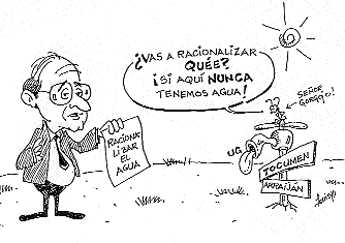 ¿VAS A RACIONALIZAR
QUÉE?
¡SI AQUÍ NUNCA
TENEMOS AGUA!
SEÑOR
GORGOJO!
RACIONA
LIZAR
EL
AGUA
UG
TOCUMEN
ARRAIJÁN